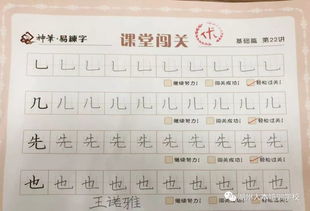 神笔·易練字 课堂闯关 优 基础篇 第22讲
乚 乚 乚 乚 乚 乚 乚 乚 乚 乚
继续努力! 闯关成功! 轻松过关!
儿 儿 儿 儿 儿 儿 儿 儿 儿 儿
继续努力! 闯关成功! 轻松过关!
先 先 先 先 先 先 先 先 先 先
继续努力! 闯关成功! 轻松过关!
也 也 也 也 也 也 也 也 也 也
继续努力! 闯关成功! 轻松过关!
王诺雅